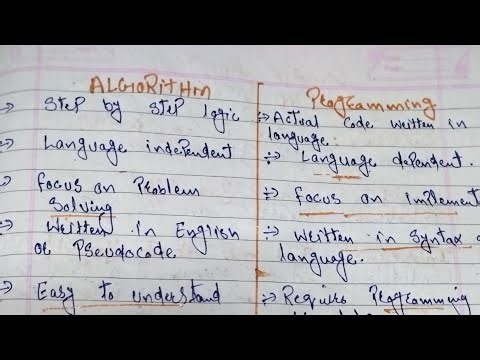 ALGIORITHM
→ Step by step logic
→ Language independent
→ focus on Problem
Solving
→ Written in English
or Pseudocode
→ Easy to understand
Programming
→ Actual code written in
language.
→ Language dependent.
→ focus on implement
→ Written in Syntax
language.
→ Requires Programming